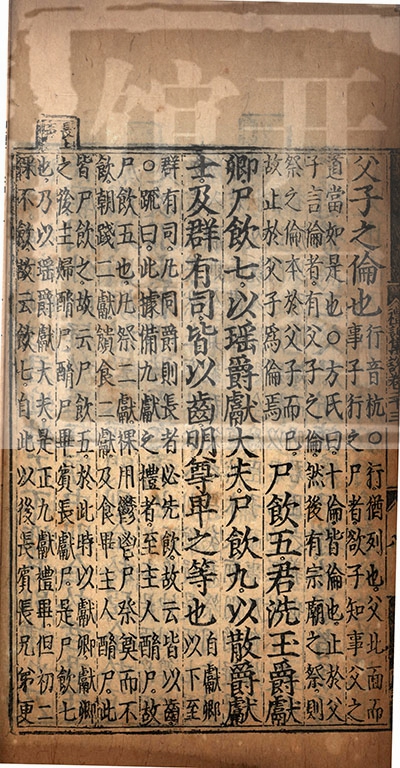 父子之倫也行音杭○行猶列也父北面而
事子行之尸者欲子知事父之
道當如是也○方氏曰十倫皆倫也止於父
子言倫者有父子之倫然後有宗廟之祭則
祭之倫本於父子而已
故止於父子爲倫焉
尸飲五君洗玉爵獻
卿尸飲七以瑶爵獻大夫尸飲九以散爵獻
士及群有司皆以齒明尊卑之等也自獻卿
以下至
群有司凡同爵則長者必先飲故云皆以齒
○疏曰此據備九獻之禮者至主人酳尸故
尸飲五也凡祭二獻祼用鬱鬯尸祭奠而不
飲朝踐二獻饋食二獻及食畢主人酳尸此
皆尸飲之故云尸飲五於此時以獻卿獻卿
之後主婦酳尸酳尸畢賓長獻尸是尸飲七
也乃以瑶爵獻大夫是正九獻禮畢但初二
祼不飲故云飲七自此以後長賓長兄弟更